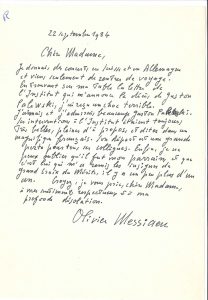 R
22 septembre 1984
Chère Madame,
Je donnais des concerts en Suisse et en Allemagne
et viens seulement de rentrer de voyage.
En trouvant sur ma table la lettre de
l'Institut qui m'annonce le décès de Gaston
Palewski, j'ai reçu un choc terrible.
J'aimais et j'admirais beaucoup Gaston Palewski.
Ses interventions à l'Institut étaient toujours
très belles, pleines d'à propos, et dites dans un
magnifique français. Son départ est une grande
perte pour tous ses collègues. Enfin, je ne
peux oublier qu'il fut mon parrain et que
c'est lui qui m'a remis les insignes de
grand'croix du Mérite, il y a un peu plus d'un
an. Croyez, je vous prie, chère Madame,
à mes sentiments respectueux et à ma
profonde désolation.
Olivier Messiaen